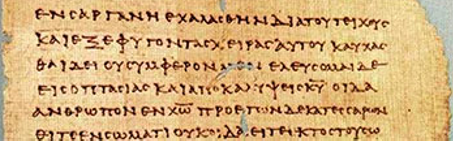 ΕΝϹΑΡΓΑΝΗΕΧΑΛΑϹΘΗΝΔΙΑΤΟΥΤΕΙΧΟΥϹ
ΚΑΙΕΞΕΦΥΓΟΝΤΑϹΧΕΙΡΑϹΑΥΤΟΥΚΑΥΧΑϹ
ΘΑΙΔΕΙΟΥϹΥΜΦΕΡΟΝ ΕΛΕΥϹΟΜΑΙΔΕ
ΕΙϹΟΠΤΑϹΙΑϹΚΑΙΑΠΟΚΑΛΥΨΕΙϹΚ̅Υ̅ΟΙΔΑ
ΑΝΘΡΩΠΟΝΕΝΧ̅Ω̅ΠΡΟΕΤΩΝΔΕΚΑΤΕϹϹΑΡΩΝ
ΕΙΤΕΕΝϹΩΜΑΤΙΟΥΚΟΙΔΑΕΙΤΕΕΚΤΟϹΤΟΥϹΩ